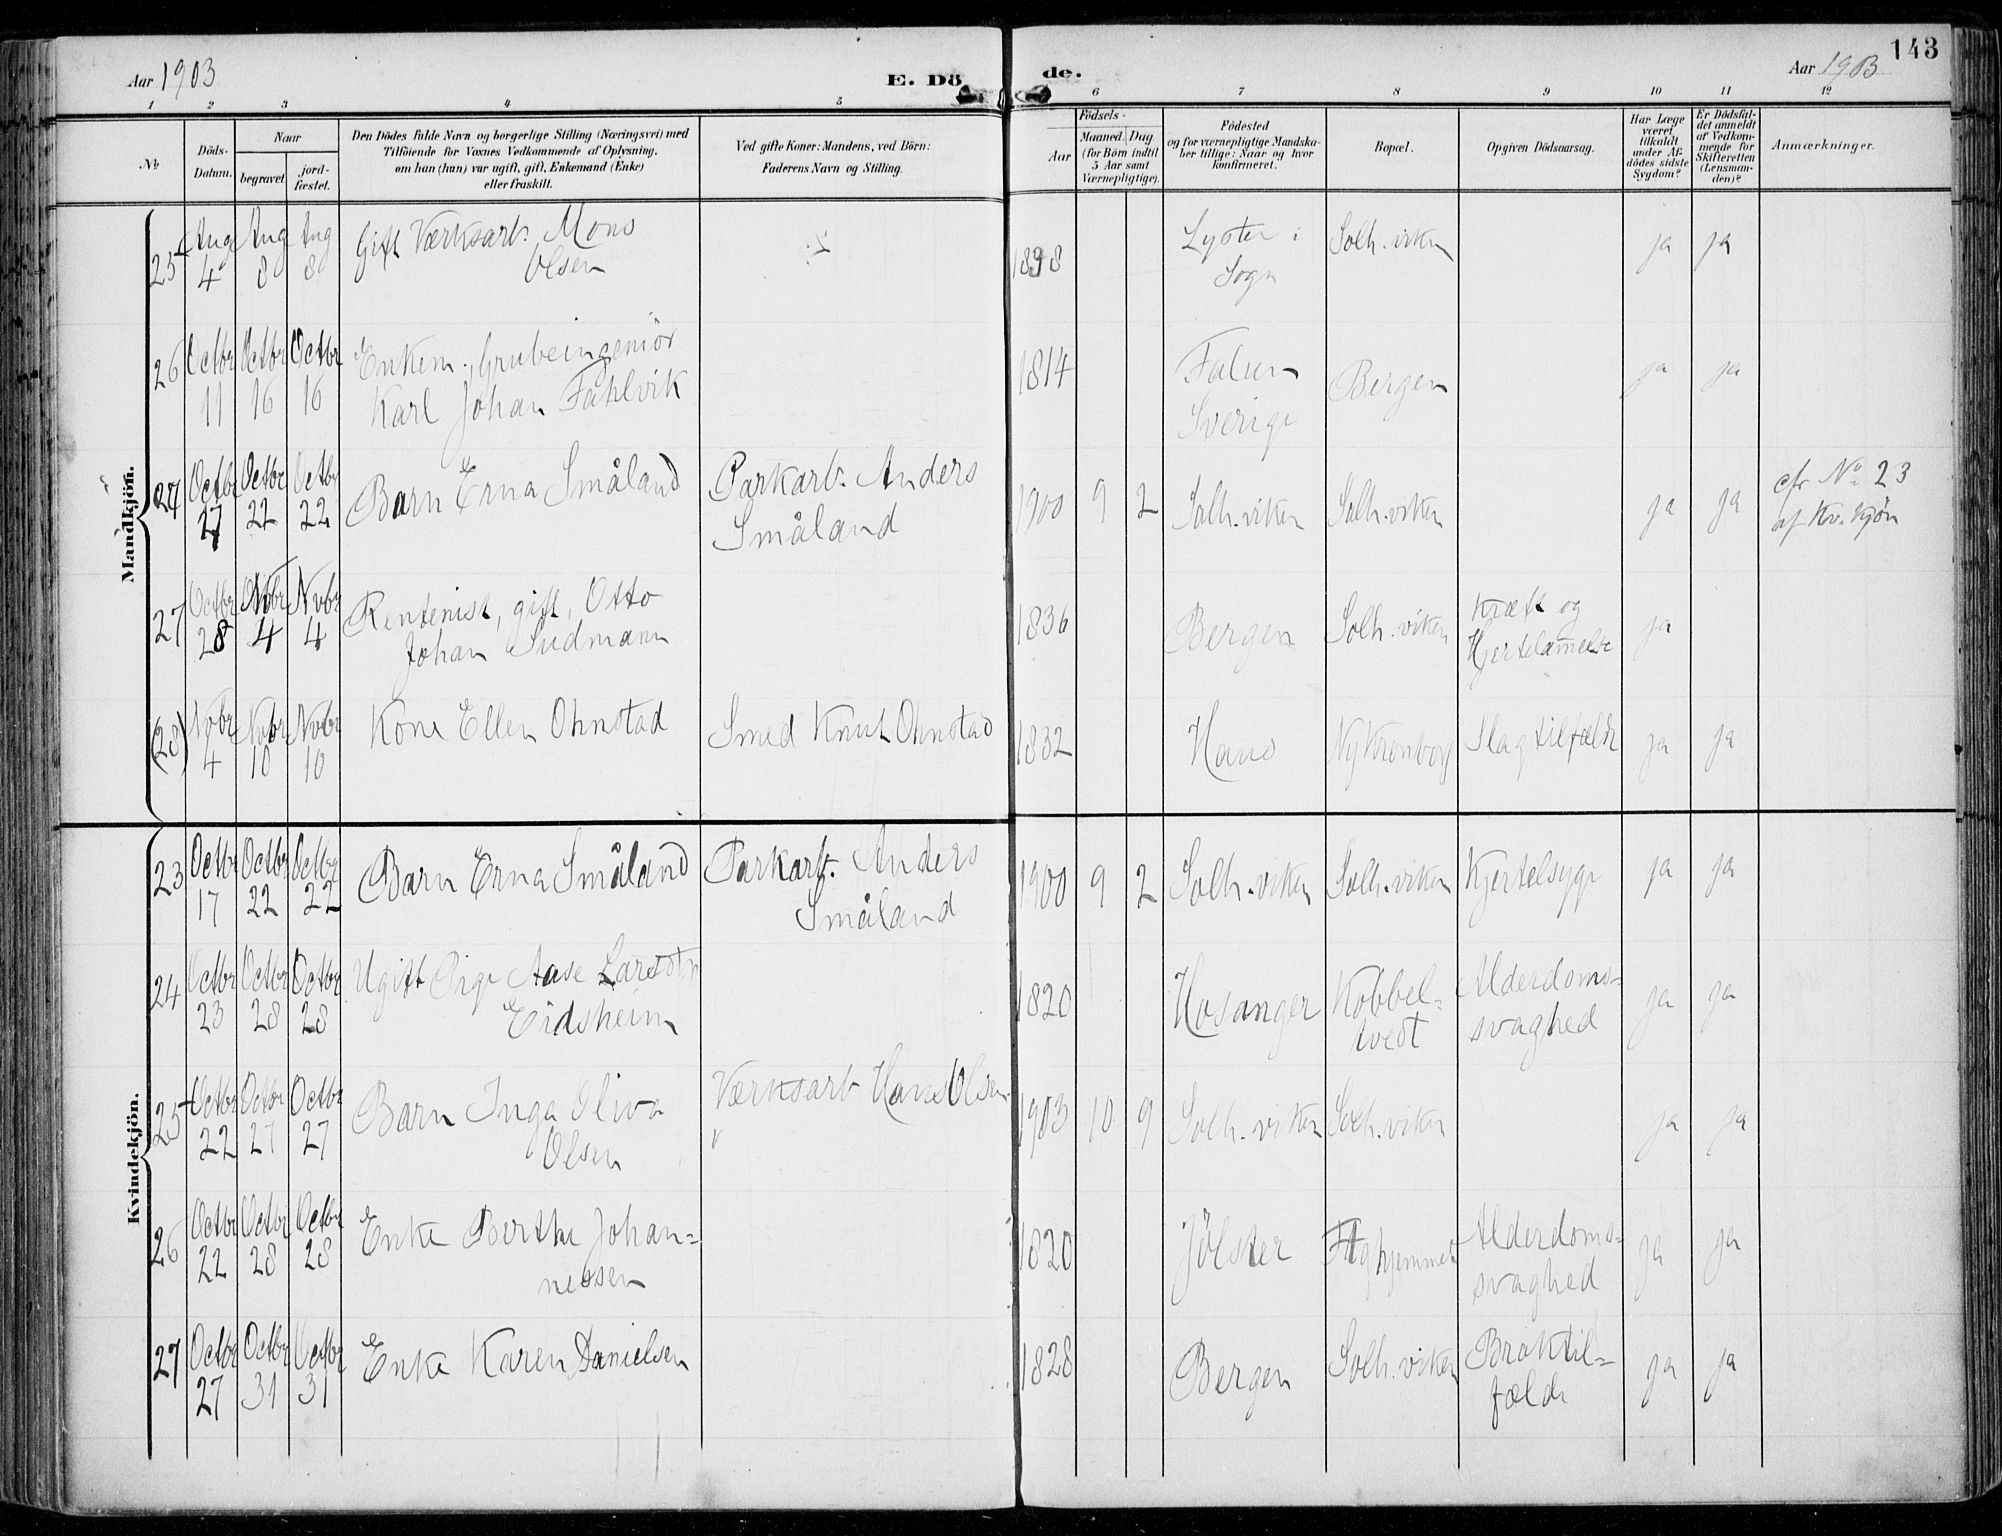 143
Aar 1903
E. Dö
de.
Aar 1903
1 2 3 4 5 6 7 8 9 10 11 12
No
Döds-
Datum.
Naar
begravet
jord-
fæstet.
Den Dödes fulde Navn og borgerlige Stilling (Næringsvei) med
Tilföiende for Voxnes Vedkommende af Oplysning,
om han (hun) var ugift, gift, Enkemand (Enke)
eller fraskilt.
Ved gifte Koner: Mandens, ved Börn:
Faderens Navn og Stilling.
Aar
Födsels-
Maaned. Dag
(for Börn indtil
5 Aar samt
Værnepligtige).
Födested
og for værnepligtige Mandska-
ber tillige: Naar og hvor
konfirmeret.
Bopæl.
Opgiven Dödsaarsag.
Har Læge
været
tilkaldt
under Af-
dödes sidste
Sygdom?
Er Dödsfal-
det anmeldt
af Vedkom-
mende for
Skifteretten
(Lensman-
den)?
Anmærkninger.
Mandkjön.
25 Aug 4 Aug 8 Aug 8 Gift Værksarb. Mons
Olsen
1838 Lyster i
Sogn
Solh.viken ja ja
26 Octbr 11 Octbr 16 Octbr 16 Enkem. Grubeingeniör
Karl Johan Fahlvik
1814 Falun
Sverige
Bergen ja ja
27 Octbr 17 Octbr 22 Octbr 22 Barn Erna Småland
Parkarb. Anders
Småland
1900 9 2 Solh.viken Solh.viken ja ja
cfr No 23
af Kv.kjön
27 Octbr 28 Nvbr 4 Nvbr 4 Rentenist, gift, Otto
Johan Sudmann
1836 Bergen Solh.viken Kræft og
Hjertelammelse
ja
(28) Nvbr 4 Nvbr 10 Nvbr 10 Kone Ellen Ohnstad
Smed Knut Ohnstad
1832 Haus Ny Kronborg Slagtilfælde ja ja
Kvindekjön.
23 Octbr 17 Octbr 22 Octbr 22 Barn Erna Småland
Parkarb. Anders
Småland
1900 9 2 Solh.viken Solh.viken Kjertelsyge ja ja
24 Octbr 23 Octbr 28 Octbr 28 Ugift Pige Aase Larsdtr
Eidsheim
1820 Hosanger Kobbel-
tvedt
Alderdoms-
svaghed
ja ja
25 Octbr 22 Octbr 27 Octbr 27 Barn Inga Oliva
Olsen
Værksarb Hans Olsen
1903 10 9 Solh.viken Solh.viken ja ja
26 Octbr 22 Octbr 28 Octbr 28 Enke Berthe Johan-
nessen
1820 Jölster
Alderdoms-
svaghed
ja ja
27 Octbr 27 Octbr 31 Octbr 31 Enke Karen Danielsen
1828 Bergen Solh.viken Braktil-
fælde
ja ja